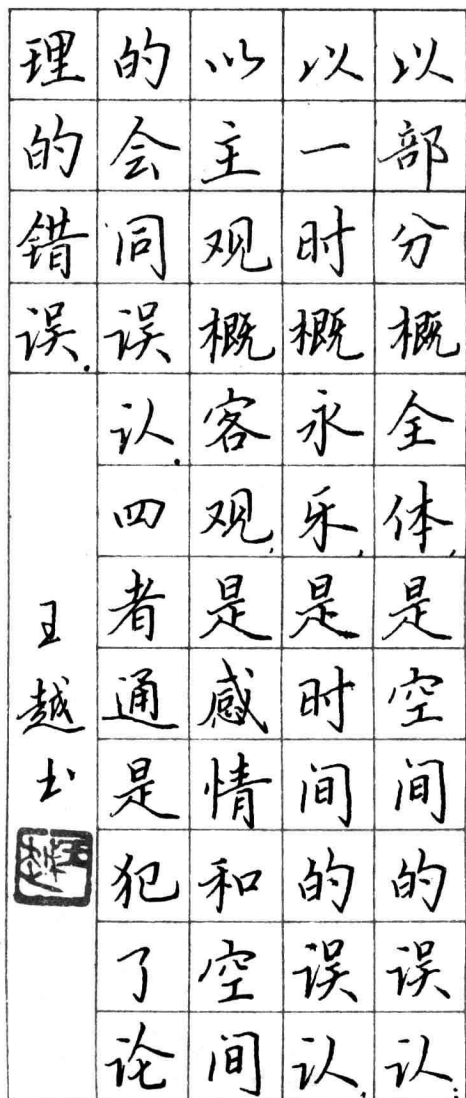 以部分概全体,是空间的误认;
以一时概永乐,是时间的误认,
以主观概客观,是感情和空间
的会同误认.四者通是犯了论
理的错误.
王越书